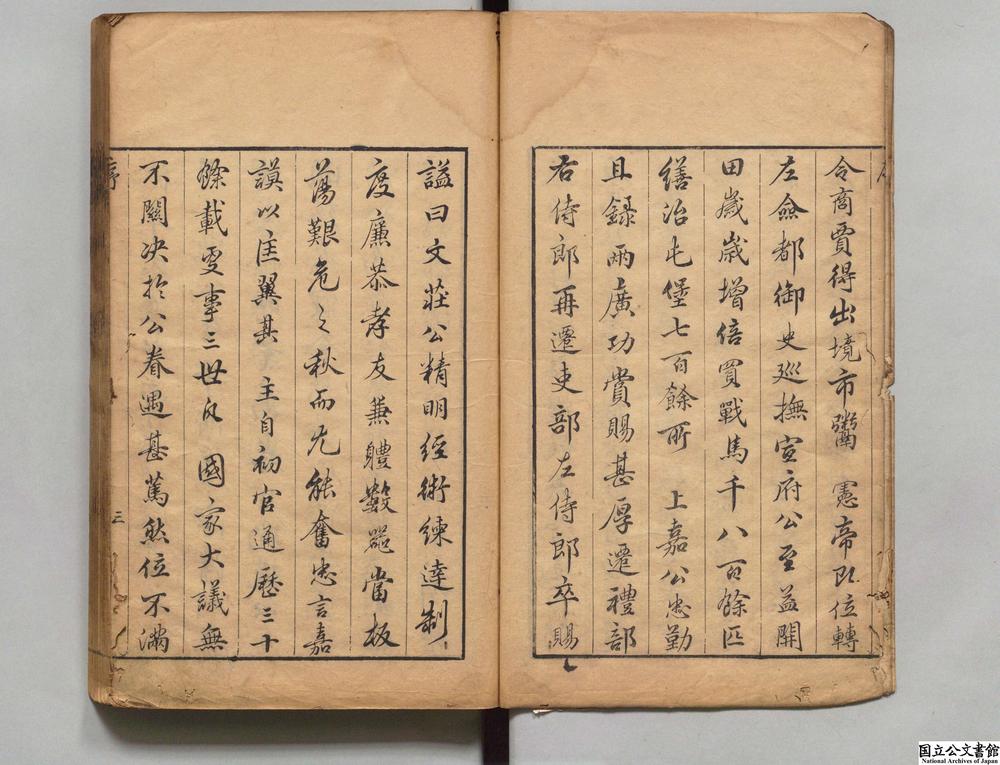 令商賈得出境市鬻　憲帝即位轉
左僉都御史巡撫宣府公至益開
田歲歲增倍買戰馬千八百餘匹
繕治屯堡七百餘所　上嘉公忠勤
且錄兩廣功賞賜甚厚遷禮部
右侍郎再遷吏部左侍郎卒賜
諡曰文莊公精明經術練達制
度廉恭孝友兼體數器當板
蕩艱危之秋而尤能奮忠言嘉
謨以匡翼其　主自初官通歷三十
餘載更事三世凡　國家大議無
不關決於公眷遇甚篤然位不滿
序
三
国立公文書館
National Archives of Japan